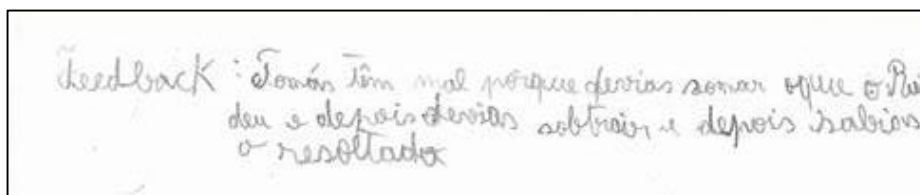 Feedback: Tomás têm mal porque devias somar oque o Rui
deu e depois devias sobtrair e depois sabias
o resoltado